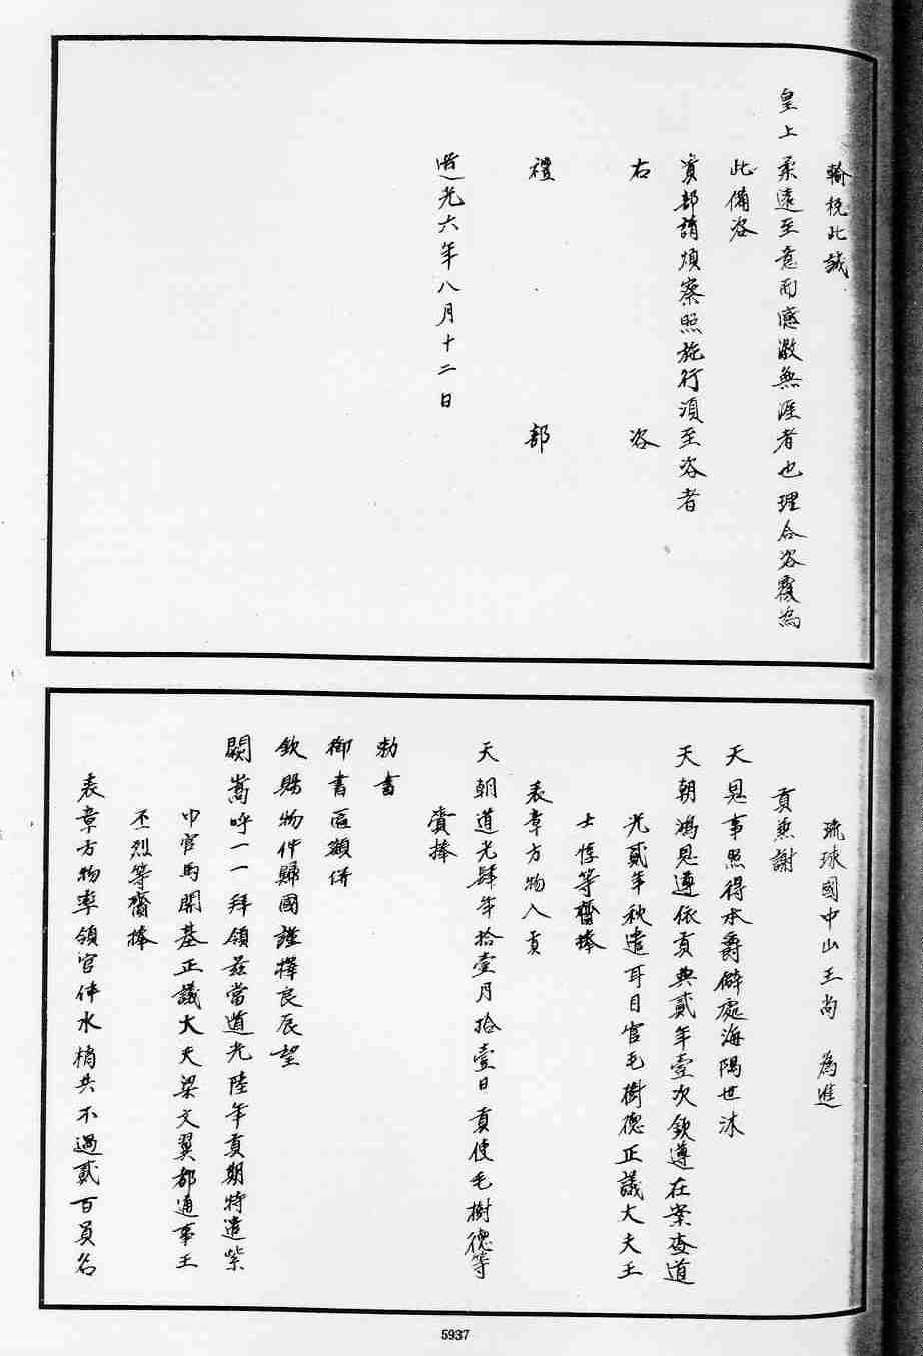 輸悦此誠
皇上柔遠至意而感激無涯者也理合咨覆為
此備咨
貴部請煩察照施行須至咨者
右咨
禮部
道光六年八月十二日
琉球國中山王尚　為進
貢兼謝
天恩事照得本爵僻處海隅世沐
天朝鴻恩遵依貢典貳年壹次欽遵在案查道
光貳年秋遣耳目官毛樹德正議大夫王
士惇等齎捧
表章方物入貢
天朝道光肆年拾壹月拾壹日貢使毛樹德等
賚捧
勅書
御書區額併
欽賜物件歸國謹擇良辰望
闕嵩呼一一拜領茲當道光陸年貢期特遣紫
巾官馬開基正議大夫梁文翼都通事王
丕烈等齎捧
表章方物率領官伴水梢共不過貳百員名
5937